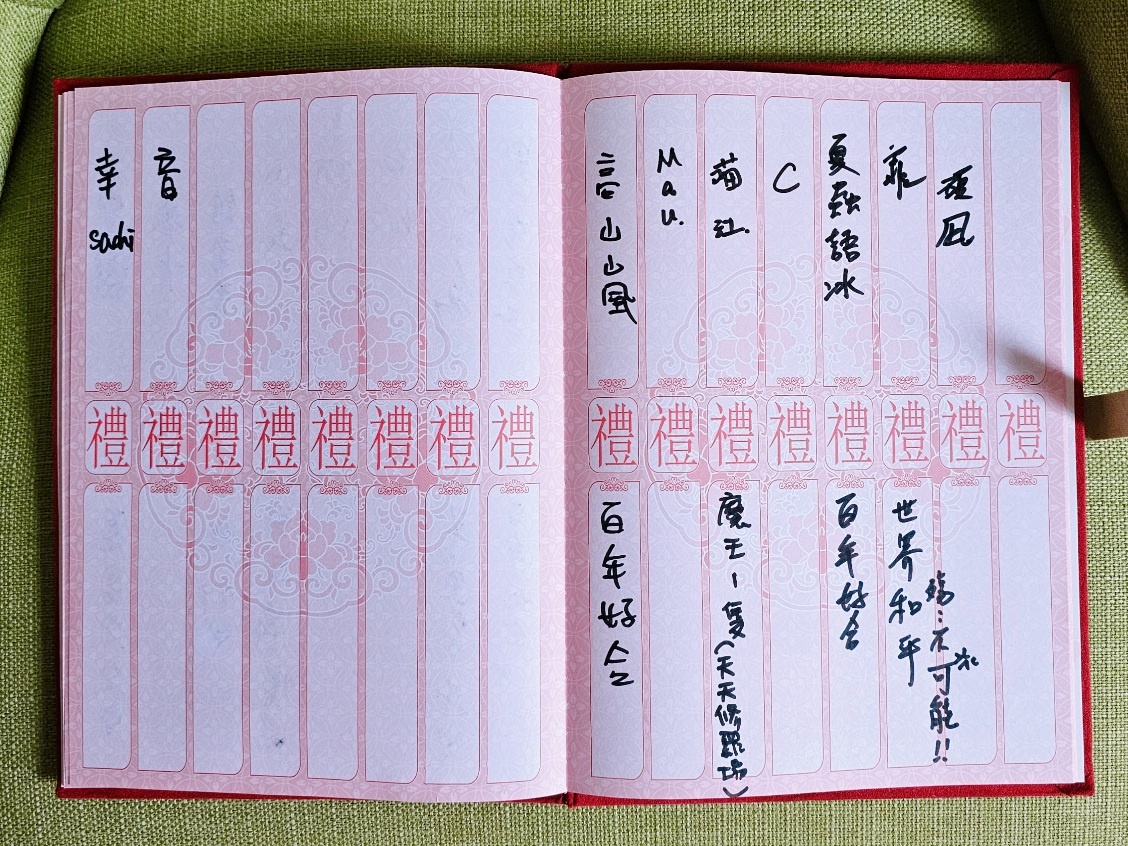 禮
凪
禮
不可能!!
禮
世界和平
夏蟲語冰
禮
百年好合
C
禮
貓紅.
禮
魔王一隻(天天修羅場)
Mau.
禮
言山山風
禮
百年好合
禮
禮
禮
禮
禮
禮
音
禮
幸 sachi
禮